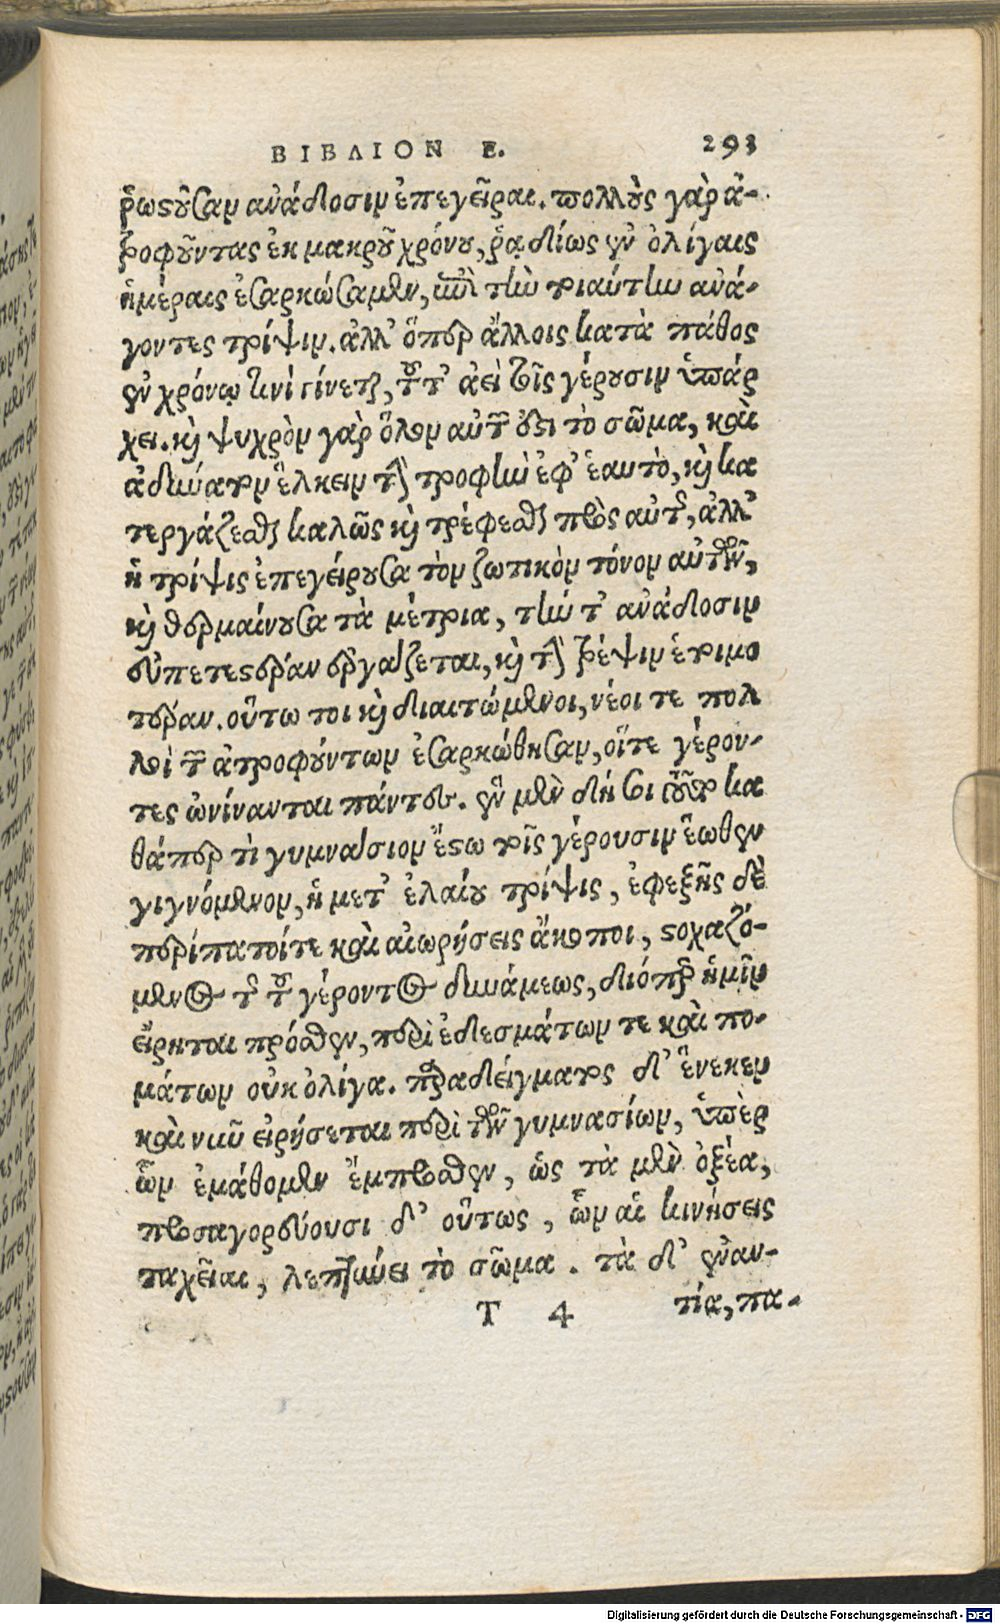 ΒΙΒΛΙΟΝ Ε. 293
ῤῥωστοῦσαν ἀνάδοσιν ἐπεγεῖραι. πολλοὺς γὰρ ἀ-
τροφοῦντας ἐκ μακροῦ χρόνου, ῥᾳδίως ἐν ὀλίγαις
ἡμέραις ἐσαρκώσαμεν, ἐπὶ τὴν τοιαύτην ἀνά-
γοντες τρίψιν. ἀλλ' ὅπερ ἄλλοις κατὰ πάθος
ἐν χρόνῳ τινὶ γίνεται, τοῦτ' ἀεὶ τοῖς γέρουσιν ὑπάρ
χει. καὶ ψυχρὸν γὰρ ὅλον αὐτῶν ἐστι τὸ σῶμα, καὶ
ἀδύνατον ἕλκειν τὴν τροφὴν ἐφ' ἑαυτὸ, καὶ κα
τεργάζεσθαι καλῶς καὶ τρέφεσθαι πρὸς αὐτῆς, ἀλλ'
ἡ τρίψις ἐπεγείρουσα τὸν ζωτικὸν τόνον αὐτῶν,
καὶ θερμαίνουσα τὰ μέτρια, τήν τ' ἀνάδοσιν
εὐπετεστέραν ἐργάζεται, καὶ τὴν θρέψιν ἑτοιμο
τέραν. οὕτω τοι καὶ διαιτώμενοι, νέοι τε πολ
λοὶ τῶν ἀτροφούντων ἐσαρκώθησαν, οἵτε γέρον-
τες ὠνίνανται πάντες. ἓν μὲν δή σοι τοῦτο κα
θάπερ τι γυμνάσιον ἔστω τοῖς γέρουσιν ἕωθεν
γιγνόμενον, ἡ μετ' ἐλαίου τρίψις, ἐφεξῆς δὲ
περίπατοί τε καὶ αἰωρήσεις ἄκοποι, στοχαζό-
μενος τῆς τοῦ γέροντος δυνάμεως, διόπερ ἡμῖν
εἴρηται πρόσθεν, περὶ ἐδεσμάτων τε καὶ πο-
μάτων οὐκ ὀλίγα. παραδείγματος δ' ἕνεκεν
καὶ νῦν εἰρήσεται περὶ τῶν γυμνασίων, ὑπὲρ
ὧν ἐμάθομεν ἔμπροσθεν, ὡς τὰ μὲν ὀξέα,
προσαγορεύουσι δ' οὕτως, ὧν αἱ κινήσεις
ταχεῖαι, λεπτύνει τὸ σῶμα. τὰ δ' ἐναν-
T 4 τία, πα-
Digitalisierung gefördert durch die Deutsche Forschungsgemeinschaft - DFG